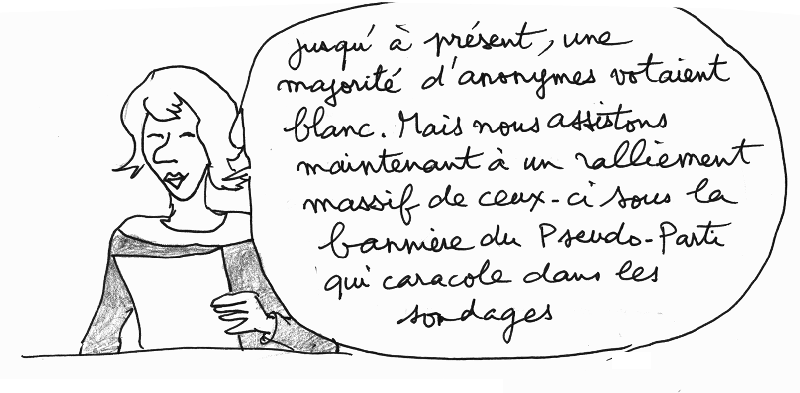 jusqu'à présent, une
majorité d'anonymes votaient
blanc. Mais nous assistons
maintenant à un ralliement
massif de ceux-ci sous la
bannière du Pseudo-Parti
qui caracole dans les
sondages